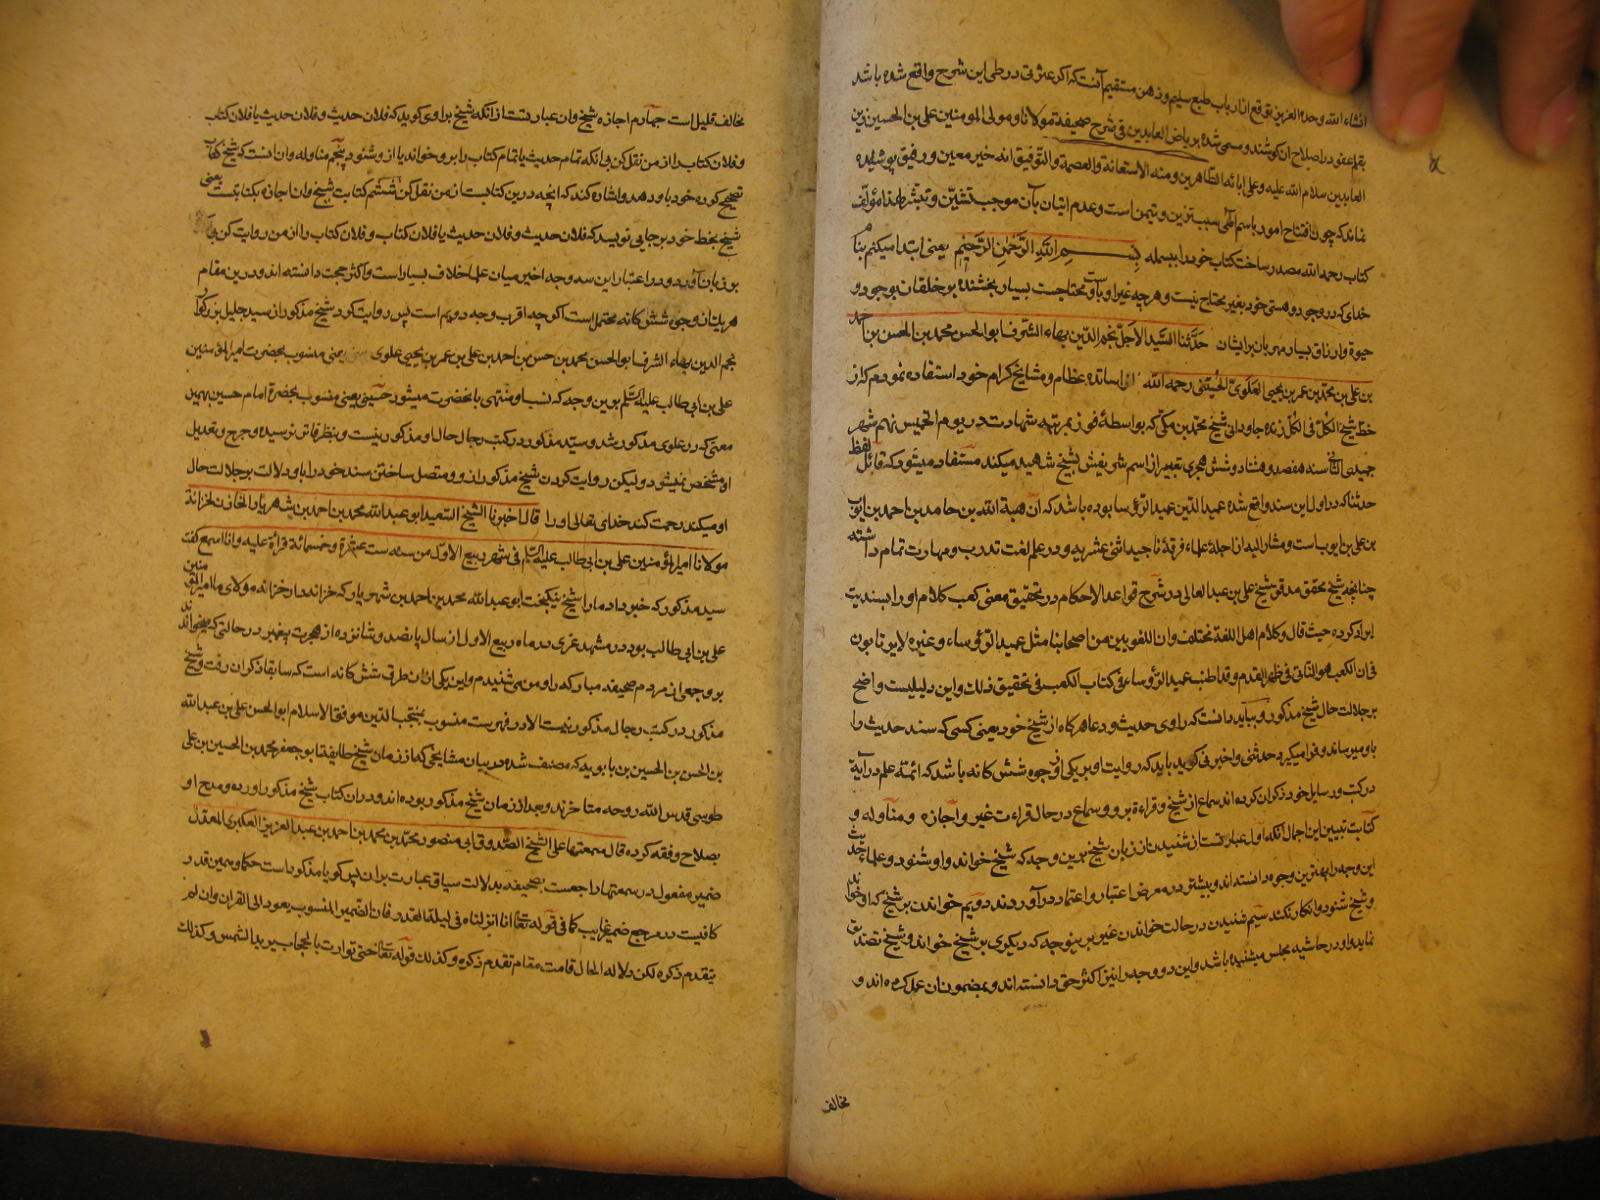 انشاء الله وحده العزیز بتوقع از ارباب طبع سلیم و ذهن مستقیم آنست که اگر عثرتی در طی این شرح واقع شده باشد
بقلم عفو در اصلاح ان کوشند و مسمی شده بریاض العابدین فی شرح صحیفة مولانا و مولی المومنین علی بن الحسین زین
العابدین سلام الله علیه و علی ابائه الطاهرین و منه الاستعانة و العصمة و التوفیق انه خیر معین و رفیق پوشیده
نماند که چون افتتاح امور باسم الهی سبب تزین و تیمن است و عدم اتیان بآن موجب تشین و تبتر لهذا مؤلف
کتاب رحمه الله مصدر ساخت کتاب خود را ببسمله بسم الله الرحمن الرحیم یعنی ابتدا میکنم بنام
خدای که در وجود و هستی خود بغیر محتاج نیست و هر چه غیر اوست باو محتاجست بسیار بخشنده بر خلقان بوجود و
حیوة و ارزاق بسیار مهربان بر ایشان حدثنا السید الاجل نجم الدین بهاء الشرف ابو الحسن محمد بن الحسن بن احمد
بن علی بن محمد بن عمر بن یحیی العلوی الحسینی رحمه الله از اساتذه عظام و مشایخ کرام خود استفاده نمودم که از
خط شیخ الکل فی الکل زنده جاودانی شیخ محمد بن مکی که بواسطهٔ فوز بمرتبه شهادت در یوم الخمیس نهم شهر
جمیدی الثانی سنه هفصد و هشتاد و شش هجری تعبیر از اسم شریفش بشیخ شهید میکند مستفاد میشود که قائل لفظ
حدثنا که در اول این سند واقع شده عمید الدین عمید الرؤسا بوده باشد که ان هبة الله بن حامد بن احمد بن ایوب
بن علی بن ایوب است و مشار الیه از اجلهٔ علماء فرقهٔ ناجیه اثنی عشریه و در علم لغت تدرب و مهارت تمام داشته
چنانچه شیخ محقق مدقق شیخ علی بن عبد العالی در شرح قواعد الاحکام در تحقیق معنی کعب کلام او را بسندیت
ایراد کرده حیث قال و کلام اهل اللغة مختلف و ان اللغویین من اصحابنا مثل عمید الرؤساء و غیره لا یرتابون
فی ان الکعب هو الناتی فی ظهر القدم و قد اطنب عمید الرؤساء فی کتاب الکعب فی تحقیق ذلک و این دلیلیست واضح
بر جلالت حال شیخ مذکور و بباید دانست که راوی حدیث و دعا هر گاه از شیخ خود یعنی کسی که سند حدیث را
باو میرساند و فرا میگیرد حدثنی و اخبرنی گوید باید که روایت او بر یکی از وجوه شش کانه باشد که ائمهٔ علم درایة
در کتب و رسایل خود ذکر ان کرده اند سماع از شیخ و قراءة بر او و سماع در حال قراءت غیر و اجازه و مناوله و
کتابت تبیین این اجمال انکه اول عبارتست از شنیدن از زبان شیخ برین وجه که شیخ خواند و او شنود و علماء حدیث
این وجه را بهترین وجوه دانسته اند و بیشتر در معرض اعتبار و اعتماد در آوردند دویم خواندن بر شیخ که او خواند
و شیخ شنود و انکار نکند سیم شنیدن در حالت خواندن غیر برینوجه که دیگری بر شیخ خواند و شیخ تصدیق
نماید و او در حاشیه مجلس میشنیده باشد و این دو وجه را نیز اکثر حق دانسته اند و بمضمون ان عمل کرده اند و
مخالف
مخالف قلیل است چهارم اجازه شیخ و ان عبارتست از انکه شیخ براوی گوید که فلان حدیث و فلان حدیث یا فلان کتاب
و فلان کتاب را از من نقل کن بی انکه تمام حدیث یا تمام کتاب را برو خواند یا ازو شنود پنجم مناوله و ان انست که شیخ کتاب
تصحیح کرده خود باو دهد و اشاره کند که انچه درین کتابست از من نقل کن ششم کتابت شیخ و ان اجازه بکتابتست یعنی
شیخ بخط خود بر جایی نویسد که فلان حدیث و فلان حدیث یا فلان کتاب و فلان کتاب را از من روایت کن بی
بر زبان آورد و در اعتبار این سه وجه اخیر میان علما خلاف بسیار است و اکثر حجت دانسته اند و درین مقام
هر یک از وجوه شش کانه محتمل است اگر چه اقرب وجه دویم است پس روایت کرد شیخ مذکور از سید جلیل بزرگوار
نجم الدین بهاء الشرف ابو الحسن محمد بن حسن بن احمد بن علی بن محمد بن عمر بن یحیی علوی یعنی منسوب بحضرت امیر المؤمنین
علی بن ابی طالب علیه السلم برین وجه که نسب او منتهی بانحضرت میشود حسینی یعنی منسوب بحضرة امام حسین بهمین
معنی که در علوی مذکور شد و سید مذکور در کتب رجال حال او مذکور نیست و بنظر قاصر نرسیده و جرح و تعدیل
او مشخص نمیشود و لیکن روایت کردن شیخ مذکور ازو و متصل ساختن سند خود را باو دلالت بر جلالت حال
او میکند رحمت کند خدای تعالی او را قال اخبرنا الشیخ السعید ابو عبد الله محمد بن احمد بن شهریار الخازن لخزانة
مولانا امیر المؤمنین علی بن ابی طالب علیه السلم فی شهر ربیع الاول من سنه ست عشرة و خمسمائة قراءة علیه و انا اسمع گفت
سید مذکور که خبر داد ما را شیخ نیکبخت ابو عبد الله محمد بن احمد بن شهریار که خزانه دار خزانه مولای ما امیر المؤمنین
علی بن ابی طالب بود در مشهد غروی در ماه ربیع الاول از سال پانصد و شانزده از هجرت پیغمبر در حالتی که میخواند
برو جمعی از مردم صحیفه مبارکه را و من می شنیدم و این یکی از ان طرق شش کانه است که سابقا ذکر ان رفت و شیخ
مذکور در کتب رجال مذکور نیست الا در فهرست منسوب بمنتجب الدین موفق الاسلام ابو الحسن علی بن عبد الله
بن الحسن بن الحسین بن بابویه که مصنف شده در بیان مشایخی که از زمان شیخ طایفه ابو جعفر محمد بن الحسین بن علی
طوسی قدس الله روحه متاخرند و بعد از زمان شیخ مذکور بوده اند و در ان کتاب شیخ مذکور را اورده و مدح او
بصلاح و فقه کرده قال سمعتها علی الشیخ الصدوق ابی منصور محمد بن محمد بن احمد بن عبد العزیز العکبری المعدل
ضمیر مفعول در سمعتها راجعست بصحیفه بدلالت سیاق عبارت بران پس گویا مذکور است حکما و همین قدر
کافیست در مرجع ضمیر غایب کما فی قوله تعا انا انزلناه فی لیلة القدر فان الضمیر المنسوب یعود الی القران و ان لم
یتقدم ذکره لکن دلالة الحال قامت مقام تقدم ذکره و کذلک قوله تعا حتی توارت بالحجاب یرید الشمس و کذلک